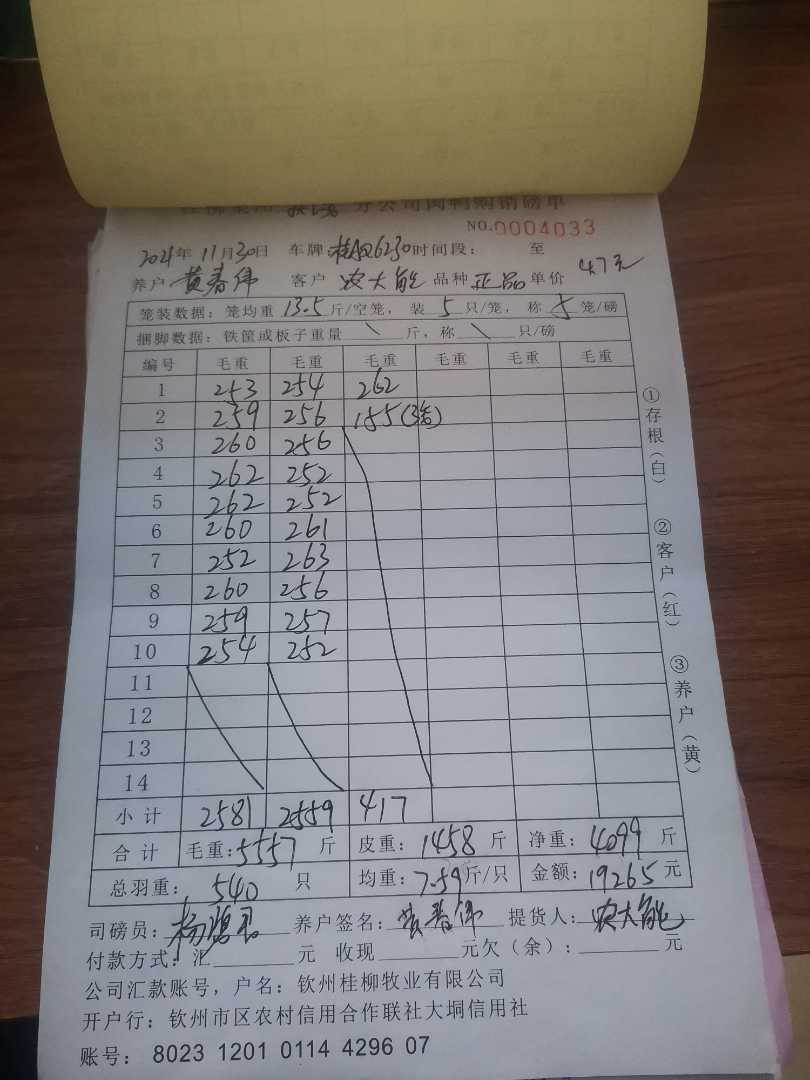 分公司肉鸭购销磅单
NO.0004033
2021年11月30日 车牌:桂A06230 时间段: 至
养户 黄春伟 客户 农大能 品种 正品 单价 4.7元
笼装数据：笼均重 13.5 斤/空笼， 装 5 只/笼， 称 5 笼/磅
捆脚数据：铁筐或板子重量 \ 斤，称 \ 只/磅
编号 毛重 毛重 毛重 毛重 毛重 毛重
1 253 254 262
2 259 256 155(3笼)
3 260 256
4 262 252
5 262 252
6 260 261
7 252 263
8 260 256
9 259 257
10 254 252
11
12
13
14
小计 2581 2559 417
合计 毛重:5557 斤 皮重: 1458 斤 净重: 4099 斤
总羽重: 540 只 均重: 7.59 斤/只 金额: 19265 元
司磅员: 养户签名: 黄春伟 提货人: 农大能
付款方式：汇 元 收现 元欠（余）: 元
公司汇款账号，户名：钦州桂柳牧业有限公司
开户行：钦州市区农村信用合作联社大垌信用社
账号： 8023 1201 0114 4296 07
①存根（白）
②客户（红）
③养户（黄）